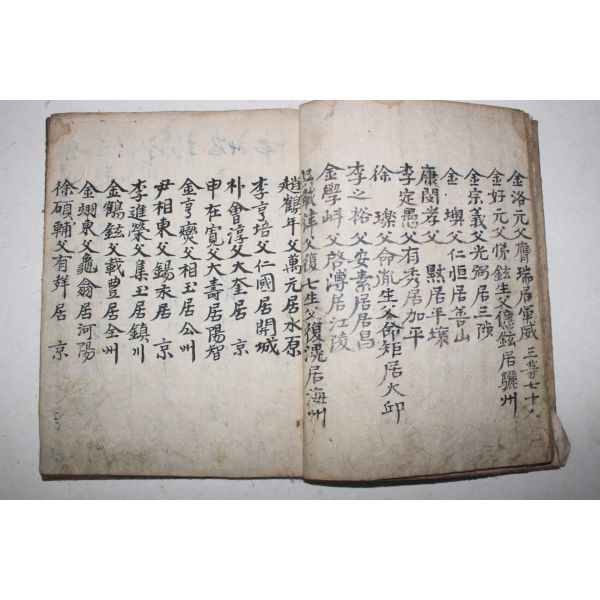 金洛元父膺瑞居軍威 三等七十人
金好元父愽鉉生父億鉉居驪州
金宗義父光弼居三陟
金㙉父仁恒居善山
康閔孝父㸃居平壤
李定愚父有秀居加平
徐璨父命胤生父命矩居大邱
李之裕父安素居居昌
金學峙父啓溥居江陵
呂 父復七生父復 居海州
趙鶴年父萬元居水原
李亨培父仁國居開城
朴會淳父大奎居 京
申在寬父大壽居陽智
金亨燮父相玉居公州
尹相東父錫永居 京
李進榮父集玉居鎮川
金鶴鉉父載豊居全州
金翊東父龜翕居河陽
徐碩輔父有鮮居 京